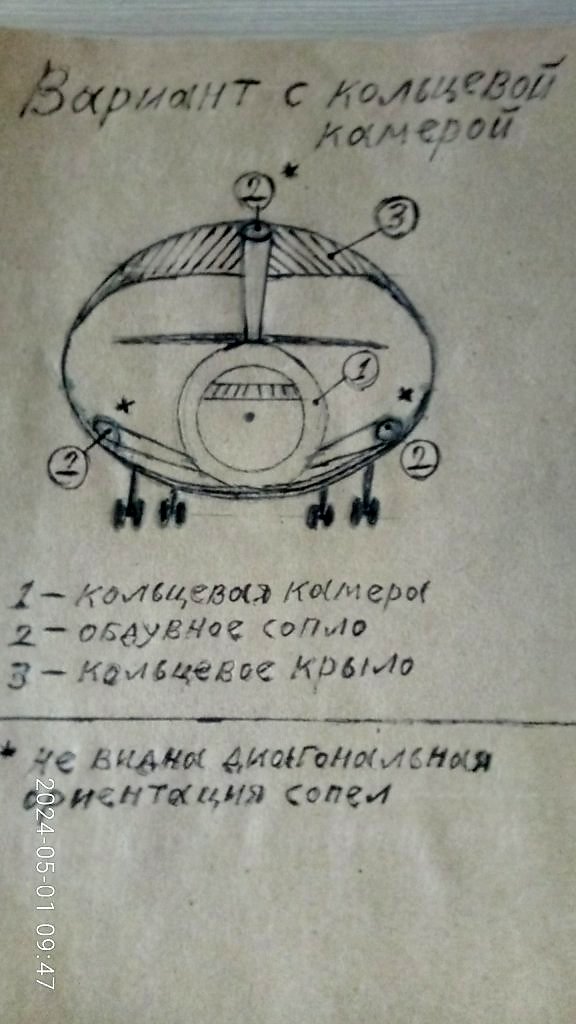 Вариант с кольцевой
камерой
2 *
3
1
* *
2 2
1 – кольцевая камера
2 – обдувное сопло
3 – кольцевое крыло
* не видна диагональная
ориентация сопел
2024-05-01 09:47